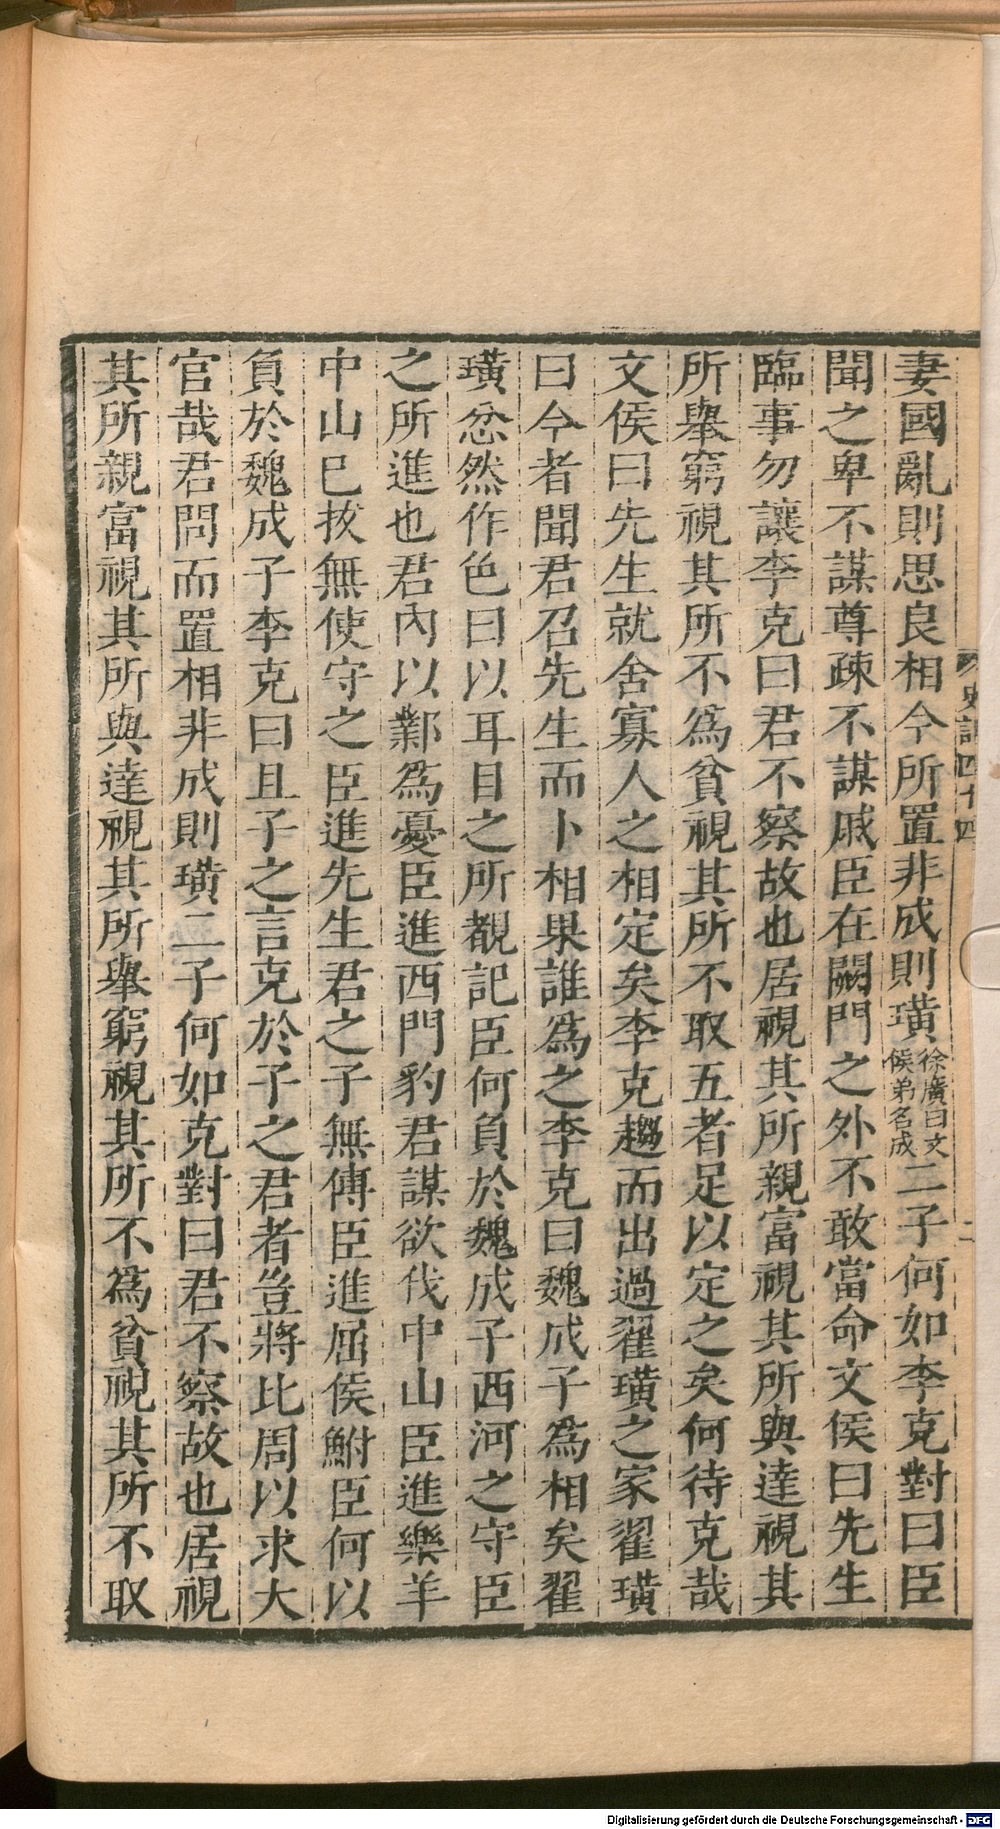 史記四十四
二
妻國亂則思良相今所置非成則璜徐廣曰文侯弟名成二子何如李克對曰臣
聞之卑不謀尊疎不謀戚臣在闕門之外不敢當命文侯曰先生
臨事勿讓李克曰君不察故也居視其所親富視其所與達視其
所舉窮視其所不為貧視其所不取五者足以定之矣何待克哉
文侯曰先生就舍寡人之相定矣李克趨而出過翟璜之家翟璜
曰今者聞君召先生而卜相果誰為之李克曰魏成子為相矣翟
璜忿然作色曰以耳目之所覩記臣何負於魏成子西河之守臣
之所進也君內以鄴為憂臣進西門豹君謀欲伐中山臣進樂羊
中山已拔無使守之臣進先生君之子無傅臣進屈侯鮒臣何以
負於魏成子李克曰且子之言克於子之君者豈將比周以求大
官哉君問而置相非成則璜二子何如克對曰君不察故也居視
其所親富視其所與達視其所舉窮視其所不為貧視其所不取
Digitalisierung gefördert durch die Deutsche Forschungsgemeinschaft - DFG